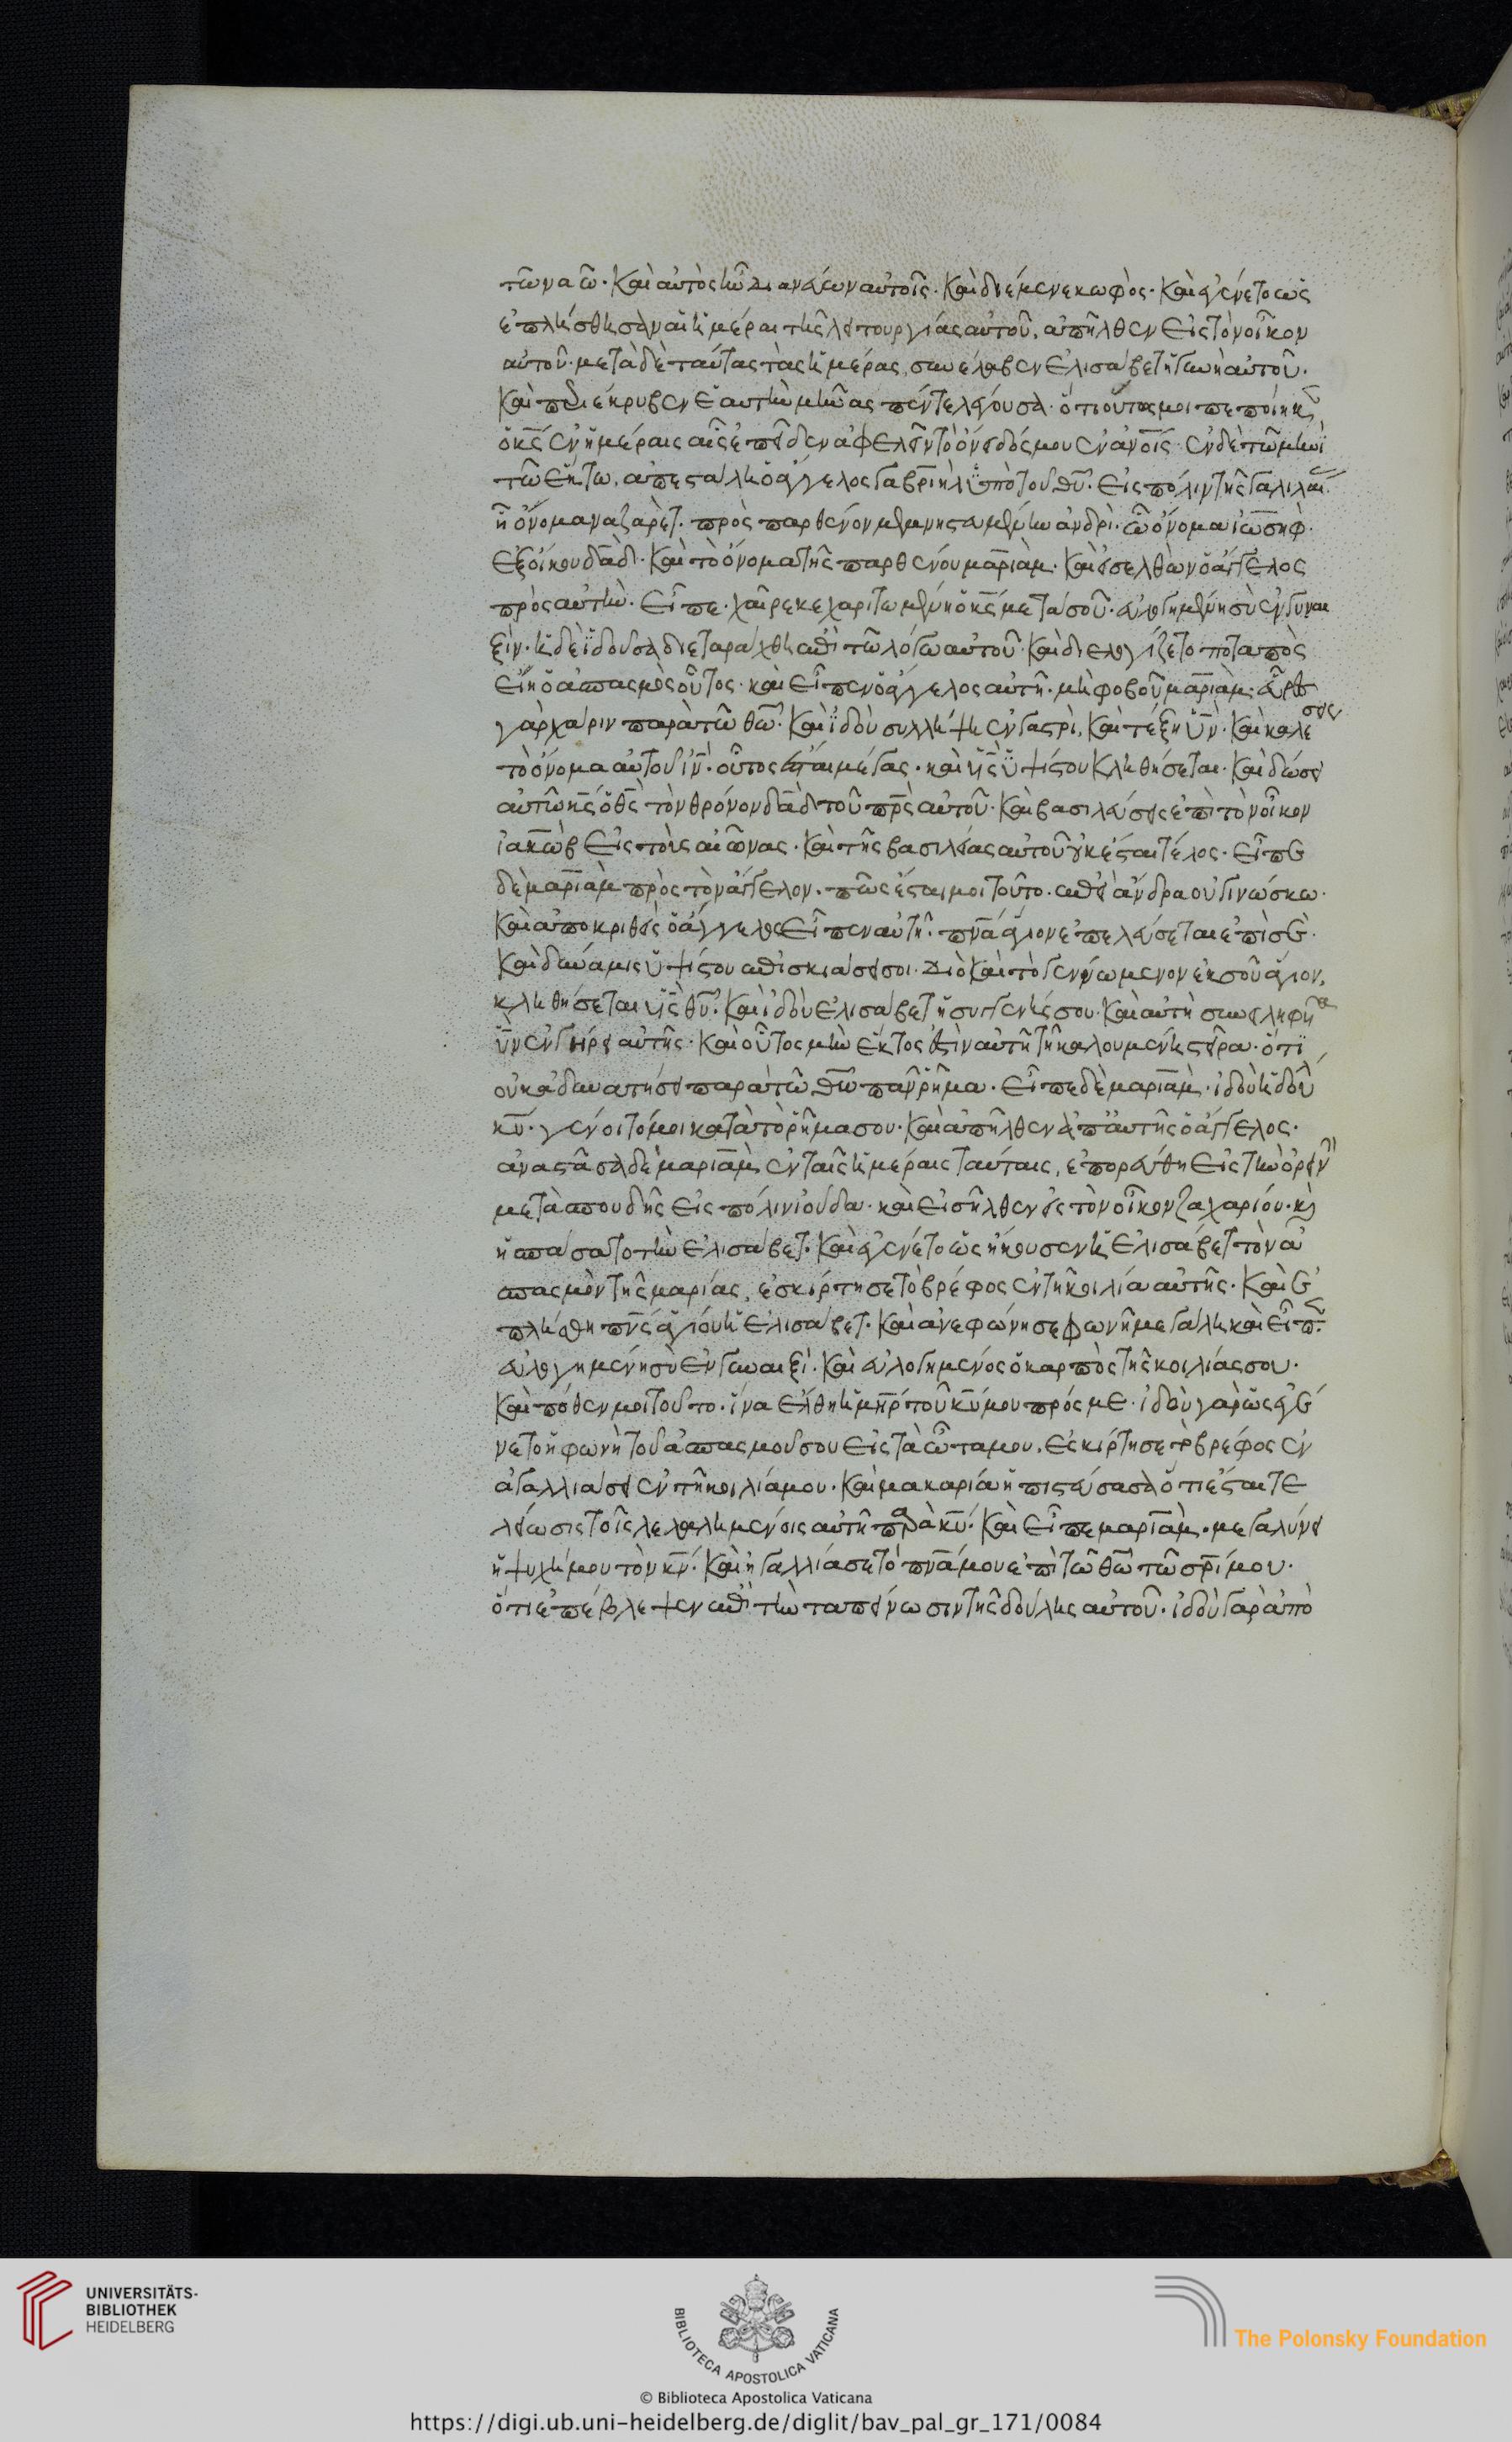 τῶ ναῶ· καὶ αὐτὸς ἦν διανεύων αὐτοῖς· καὶ διέμενε κωφὸς· καὶ ἐγένετο ὡς
ἐπλήσθησαν αἱ ἡμέραι τῆς λειτουργίας αὐτοῦ, ἀπῆλθεν εἰς τὸν οἶκον
αὐτοῦ· μετὰ δὲ ταύτας τὰς ἡμέρας, συνέλαβεν ἐλισάβετ ἡ γυνὴ αὐτοῦ·
καὶ περιέκρυβεν ἑαυτὴν μῆνας πέντε λέγουσα· ὅτι οὕτως μοι πεποίηκε
ὁ κς ἐν ἡμέραις αἷς ἐπεῖδεν ἀφελεῖν τὸ ὄνειδός μου ἐν ἀνοις· ἐν δὲ τῶ μηνὶ
τῶ ἕκτω, ἀπεστάλη ὁ ἄγγελος γαβριὴλ ὑπὸ τοῦ θυ· εἰς πόλιν τῆς γαλιλαί
ἧ ὄνομα ναζαρὲτ· πρὸς παρθένον μεμνηστευμένην ἀνδρὶ· ὧ ὄνομα ἰωσὴφ·
ἐξ οἴκου δαδ· καὶ τὸ ὄνομα τῆς παρθένου μαριὰμ· καὶ εἰσελθὼν ὁ ἄγγελος
πρὸς αὐτὴν· εἶπε· χαῖρε κεχαριτωμένη ὁ κς μετὰ σοῦ· εὐλογημένη σὺ ἐν γυναι
ξὶν· ἡ δὲ ἰδοῦσα διεταράχθη ἐπὶ τῶ λόγω αὐτοῦ· καὶ διελογίζετο ποταπὸς
εἴη ὁ ἀσπασμὸς οὗτος· καὶ εἶπεν ὁ ἄγγελος αὐτῆ· μὴ φοβοῦ μαριὰμ· εὗρες
γὰρ χάριν παρὰ τῶ θω· καὶ ἰδοὺ συλλήψη ἐν γαστρὶ, καὶ τέξη υν· καὶ καλέσεις
τὸ ὄνομα αὐτοῦ ιν· οὗτος ἔσται μέγας· καὶ υς ὑψίστου κληθήσεται· καὶ δώσει
αὐτῶ κς ὁ θς τὸν θρόνον δαδ τοῦ πρς αὐτοῦ· καὶ βασιλεύσει ἐπὶ τὸν οἶκον
ἰακὼβ εἰς τοὺς αἰῶνας· καὶ τῆς βασιλείας αὐτοῦ οὐκ ἔσται τέλος· εἶπε
δὲ μαριὰμ πρὸς τὸν ἄγγελον· πῶς ἔσται μοι τοῦτο· ἐπεὶ ἄνδρα οὐ γινώσκω·
καὶ ἀποκριθεὶς ὁ ἄγγελος εἶπεν αὐτῆ· πνα ἅγιον ἐπελεύσεται ἐπὶ σὲ·
καὶ δύναμις ὑψίστου ἐπισκιάσει σοι· διὸ καὶ τὸ γεννώμενον ἐκ σοῦ ἅγιον,
κληθήσεται υς θυ· καὶ ἰδοὺ ἐλισάβετ ἡ συγγενής σου· καὶ αὐτὴ συνειληφῦα
υν ἐν γήρει αὐτῆς· καὶ οὗτος μὴν ἕκτος ἐστὶν αὐτῆ τῆ καλουμένη στείρα· ὅτι
οὐκ ἀδυνατήσει παρὰ τῶ θω πᾶν ῥῆμα· εἶπε δὲ μαριὰμ· ἰδοὺ ἡ δού
κυ· γένοιτό μοι κατὰ τὸ ῥῆμα σου· καὶ ἀπῆλθεν ἀπ' αὐτῆς ὁ ἄγγελος·
ἀναστᾶσα δὲ μαριὰμ ἐν ταῖς ἡμέραις ταύταις, ἐπορεύθη εἰς τὴν ὀρεινὴ
μετὰ σπουδῆς εἰς πόλιν ἰούδα· καὶ εἰσῆλθεν εἰς τὸν οἶκον ζαχαρίου· κὶ
ἠσπάσατο τὴν ἐλισάβετ· καὶ ἐγένετο ὡς ἤκουσεν ἡ ἐλισάβετ τὸν ἀ
σπασμὸν τῆς μαρίας, ἐσκίρτησε τὸ βρέφος ἐν τῆ κοιλία αὐτῆς· καὶ ἐ
πλήσθη πνς ἁγίου ἡ ἐλισάβετ· καὶ ἀνεφώνησε φωνῆ μεγάλη καὶ εἶπ·
εὐλογημένη σὺ ἐν γυναιξὶ· καὶ εὐλογημένος ὁ καρπὸς τῆς κοιλίας σου·
καὶ πόθεν μοι τοῦτο· ἵνα ἔλθη ἡ μηρ τοῦ κυ μου πρός με· ἰδοὺ γὰρ ὡς ἐγέ
νετο ἡ φωνὴ τοῦ ἀσπασμοῦ σου εἰς τὰ ὦτα μου, ἐσκίρτησε τὸ βρέφος ἐν
ἀγαλλιάσει ἐν τῆ κοιλία μου· καὶ μακαρία ἡ πιστεύσασα ὅτι ἔσται τε
λείωσις τοῖς λελαλημένοις αὐτῆ παρὰ κυ· καὶ εἶπε μαριὰμ· μεγαλύνει
ἡ ψυχή μου τὸν κν· καὶ ἠγαλλίασε τὸ πνα μου ἐπὶ τῶ θω τῶ σρι μου·
ὅτι ἐπέβλεψεν ἐπὶ τὴν ταπείνωσιν τῆς δούλης αὐτοῦ· ἰδοὺ γὰρ ἀπὸ
UNIVERSITÄTS-
BIBLIOTHEK
HEIDELBERG
BIBLIOTECA APOSTOLICA VATICANA
The Polonsky Foundation
© Biblioteca Apostolica Vaticana
https://digi.ub.uni-heidelberg.de/diglit/bav_pal_gr_171/0084